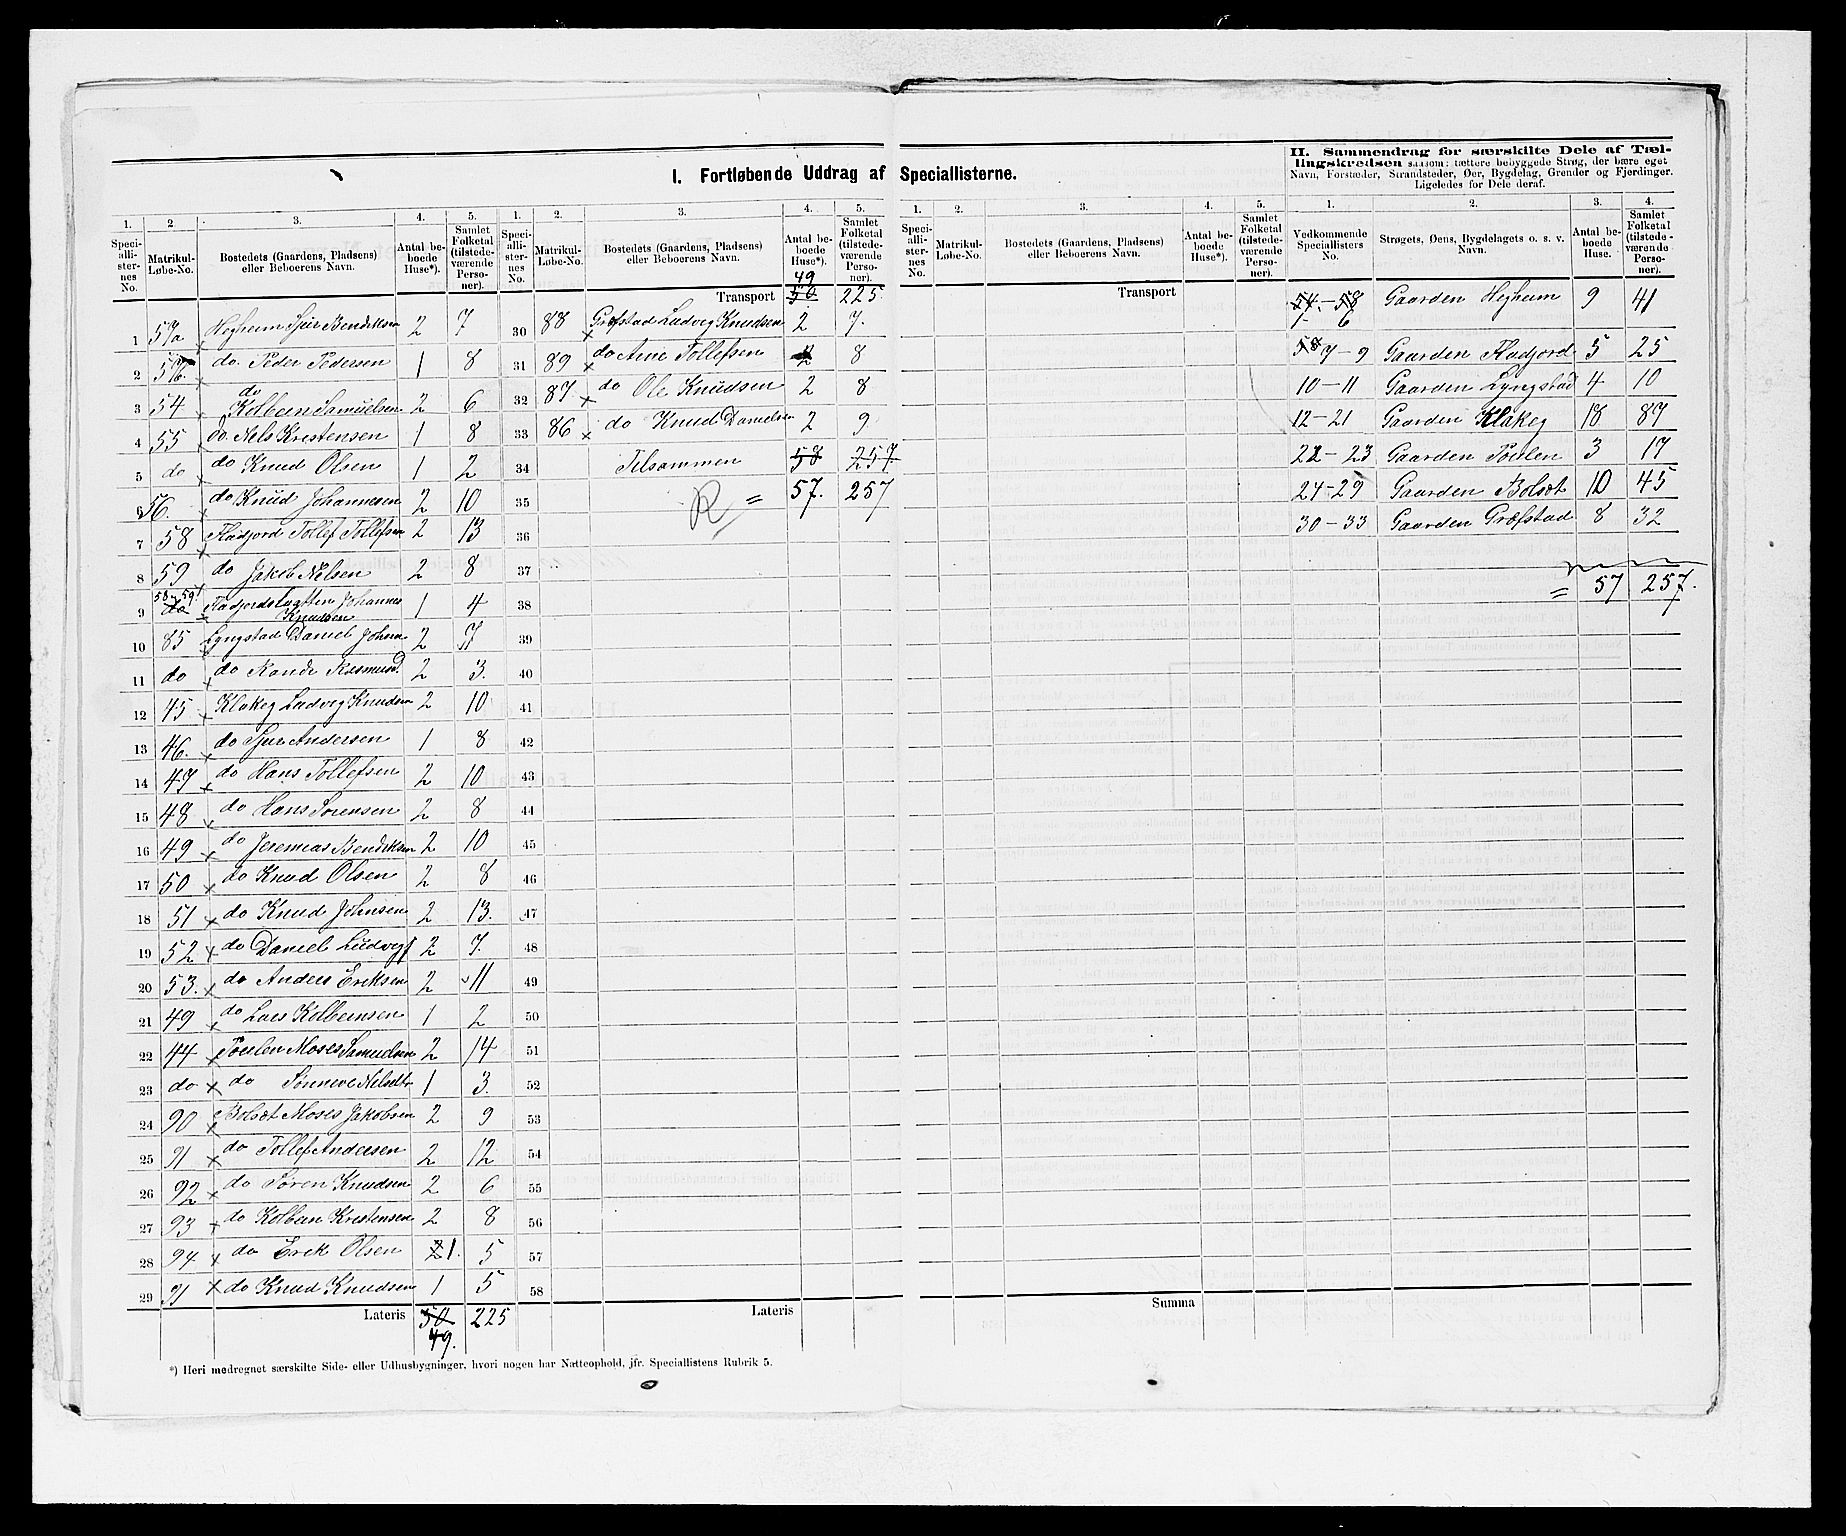 I. Fortløbende Uddrag af Speciallisterne.
II. Sammendrag for særskilte Dele af Tæl-
lingskredsen saasom: tættere bebyggede Strøg, der bære eget
Navn, Forstæder, Strandsteder, Øer, Bygdelag, Grender og Fjerdinger.
Ligeledes for Dele deraf.
1. 2. 3. 4. 5. 1. 2. 3. 4. 5. 1. 2. 3. 4. 5. 1. 2. 3. 4.
Speciallisternes No. Matrikul-Løbe-No. Bostedets (Gaardens, Pladsens) eller Beboerens Navn. Antal beboede Huse*). Samlet Folketal (tilstedeværende Personer).
Speciallisternes No. Matrikul-Løbe-No. Bostedets (Gaardens, Pladsens) eller Beboerens Navn. Antal beboede Huse*). Samlet Folketal (tilstedeværende Personer).
Speciallisternes No. Matrikul-Løbe-No. Bostedets (Gaardens, Pladsens) eller Beboerens Navn. Antal beboede Huse*). Samlet Folketal (tilstedeværende Personer).
Vedkommende Speciallisters No. Strøgets, Øens, Bygdelagets o. s. v. Navn. Antal beboede Huse. Samlet Folketal (tilstedeværende Personer).
1 57a Hegheim Sjur Bendiksen 2 7
2 57b. do. Peder Pedersen 1 8
3 54 do Kolbein Samuelsen 2 6
4 55 do. Nels Kristensen 1 8
5 do do Knud Olsen 1 2
6 56. do Knud Johannesen 2 10
7 58 Fladjord Tollef Tollefsen 2 13
8 59 do Jakob Nelsen 2 8
9 58-59 do Fladjordslugtten Johannes Knudsen 1 4
10 85 Lyngstad Daniel Johns 2 7
11 do do Rande Rasmusd. 2 3.
12 45 Klakeg Ludvig Knudsen 2 10
13 46. do Sjur Andersen 1 8
14 47 do Hans Tollefsen 2 10
15 48 do Hans Sørensen 2 8
16 49 do Jeremias Bendiksen 2 10
17 50 do Knud Olsen 2 8
18 51 do Knud Johnsen 2 13.
19 52 do Daniel Ludvigs 2 7.
20 53. do Anders Eriksen 2 11
21 49 do Lars Kolbeinsen 1 2
22 44 Søulen Moses Samuelsen 2 14
23 do do Sønneve Nelsdtr 1 3.
24 90 Bolsæt Moses Jakobsen 2 9
25 91 do Tollef Andersen 2 12
26 92 do Søren Knudsen 2 6
27 93 do Kolbein Kristensen 2 8
28 94 do Erik Olsen 2 1. 5
29 91 do Knud Knudsen 1 5
Lateris 50 225
49.
49
Transport 50 225.
30 88 Græfstad Ludvig Knudsen 2 7.
31 89 do Arne Tollefsen 2 8
32 87. do Ole Knudsen 2 8
33 86 do Knud Danielsen 2 9
34 Tilsammen 58 257
35 R = 57. 257
36
37
38
39
40
41
42
43
44
45
46
47
48
49
50
51
52
53
54
55
56
57
58
Lateris
Transport
Summa
54-58 Gaarden Hegheim 9 41
1- 6
58 7-9 Gaarden Fladjord 5 25
10-11 Gaarden Lyngstad 4 10
12-21 Gaarden Klakeg 18 87
22-23 Gaarden Søulen 3 17
24-29 Gaarden Bolsæt 10 45
30-33 Gaarden Græfstad 8 32
= 57 257.
*) Heri medregnet særskilte Side- eller Udhusbygninger, hvori nogen har Natteophold, jfr. Speciallistens Rubrik 5.